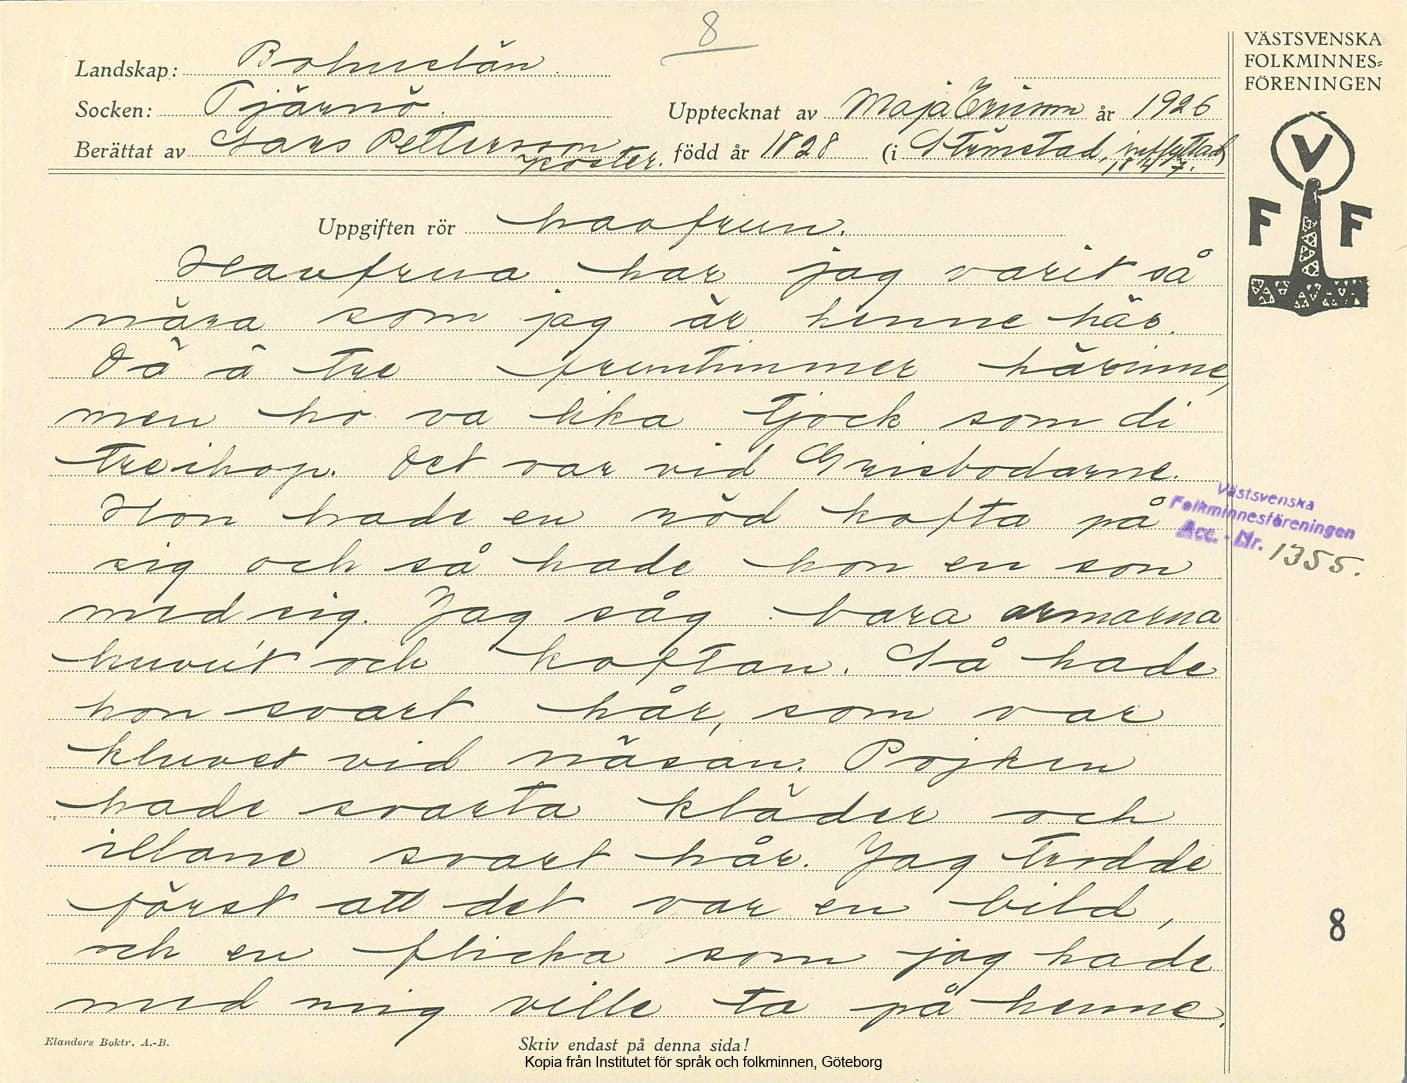 8
Landskap: Bohuslän
Socken: Tjärnö
Upptecknat av Maja Ericson år 1926
Berättat av Lars Petterson
Koster. född år 1828 (i Strömstad, inflyttad
1847.
VÄSTSVENSKA
FOLKMINNES=
FÖRENINGEN
V
F F
Uppgiften rör haafrun.
Haufrua har jag varit så
nära som jag är henne här.
Då ä tre fruntimmer härinne,
men ho va lika tjock som di
tre ihop. Det var vid Grisbodarne.
Hon hade en röd kofta på
sig och så hade hon en son
med sig. Jag såg bara armarna
huvu't och koftan. Så hade
hon svart hår, som var
kluvet vid näsan. Pojken
hade svarta kläder och
illane svart hår. Jag trodde
först att det var en bild,
och en flicka som jag hade
med mig ville ta på henne.
Västsvenska
Folkminnesföreningen
Acc. - Nr. 1355.
8
Elanders Boktr. A.-B.
Skriv endast på denna sida!
Kopia från Institutet för språk och folkminnen, Göteborg